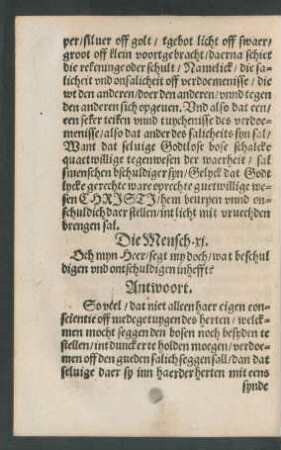 per/silver off golt/ tgebot licht off swaer/
groot off klein voortgebracht/daerna schiet
die rekenunge oder schult/ Namelick/ die sa-
licheit vnd onsalicheit off verdoemenisse/die
wt den anderen/doer den anderen/vnnd tegen
den anderen sich opgeuen. Vnd also dat een/
een seker teiken vnnd tuychenisse des verdoe-
menisse/also dat ander des salicheits syn sal/
Want dat seluige Godtlose bose schalcke
quaetwillige tegenwesen der waerheit/ sal
synenschen bschuldiger syn/Gelyck dat Godt
lycke gerechte ware oprechte guetwillige we-
sen CHRISTI/hem beuryen vnnd on-
schuldich daer stellen/int licht mit vruechden
brengen sal.
Die Mensch. xj.
Och myn Heer/segt my doch/wat beschul
digen vnd ontschuldigen inhefft?
Antwoort.
So veel/dat niet alleen haer eigen con-
scientie off medegetuygen des herten/ welck-
men mocht seggen den bosen noch besyden te
stellen/int duncker te holden moegen/verdoe-
men off den gueden salich seggen sall/dan dat
seluige daer sy inn haerder herten mit eens
synde